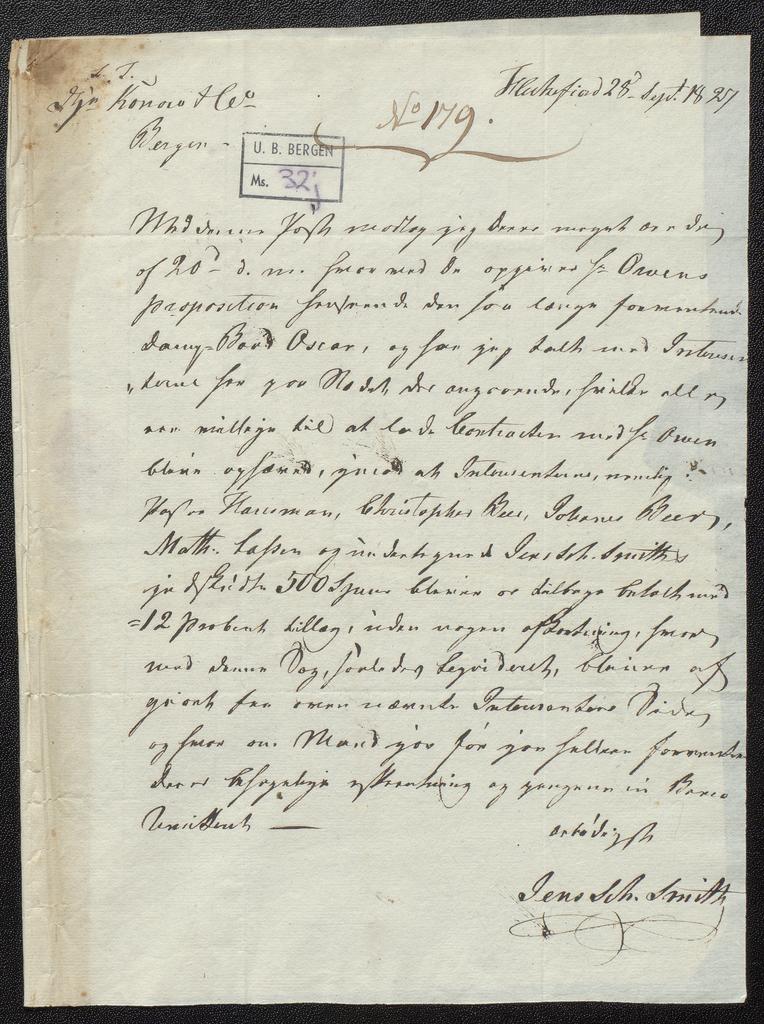 S. T.
Hrr Konow & Co
Bergen -
Flekkefiord 28d Sept. 1827
No 179.
U. B. BERGEN
Ms. 32j
Med denne Post modtog jeg Deres meget ærede
af 20d d. m. hvor ved De opgiver Hr Owens
Proposition henseende den saa længe forventende
Damp-Baad Oscar, og har jeg talt med Interesen
terne her paa Stedet des angaaende, hvilke alle
ere villige til at lade Contracten med Hr Owen
blive ophævet, imod at Interesenterne, nemlig:
Hausman, Christopher Beer, Johannes Beer,
Math. Lassen og undertegnede Jens Sch. Smith
indskudte 500 Spesier bliver os tilbage betalt med
12 Procent tillæg, uden nogen afkortning, hvor
med denne Sag, saaledes begrundet, bliver af
giort fra oven nævnte Interesentere Side
og hvor om Mand
Deres behagelige og pengene in
Remitteret —
ærbødigst
Jens Sch. Smith